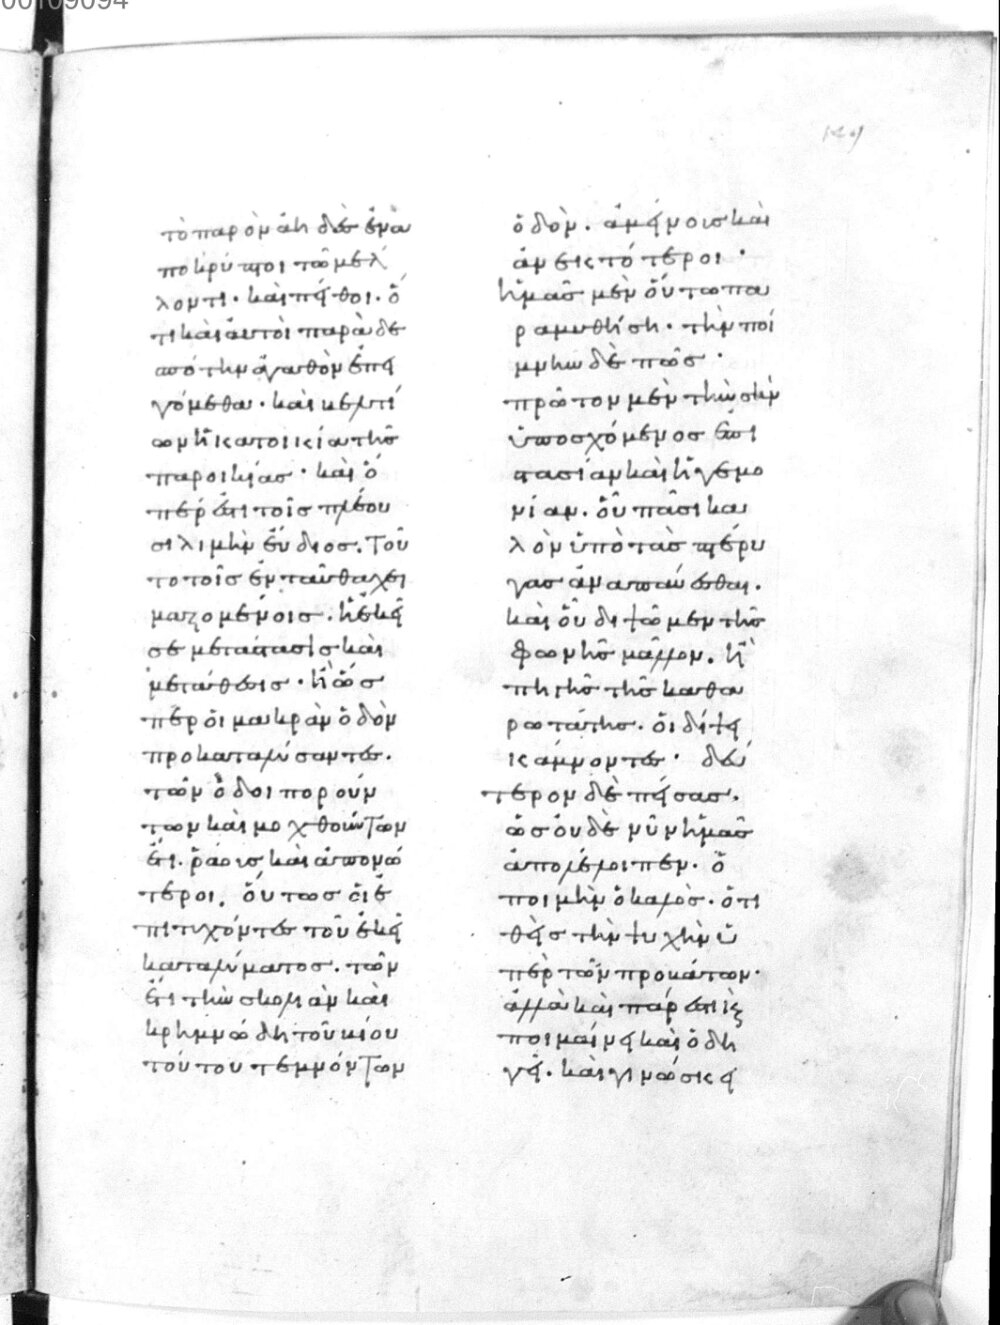 00109094
149
τὸ παρὸν ἀηδὲς ἐνα
ποκρύπτοι τῶ μέλ
λοντι· καὶ πείθοι· ὅ
τι καὶ αὐτοὶ παρὰ δε
σπότην ἀγαθὸν ἐπει
γόμεθα· καὶ κρείττ
ων ἡ κατοικία τῆς
παροικίας· καὶ ὅ
περ ἐστὶ τοῖς πλέου
σι λιμὴν εὔδιος. τοῦ
το τοῖς ἐνταῦθα χει
μαζομένοις. ἡ ἐκεῖ
σε μετάστασις καὶ
μετάθεσις· ἢ ὥσ
περ οἱ μακρὰν ὁδὸν
προκαταλύσαντες.
τῶν ὁδοιπορούν
των καὶ μοχθούντων
ἔτι. ῥάους καὶ ἀπονώ
τεροι. οὕτως οἱ ἐ
πιτυχόντες τοῦ ἐκεῖ
καταλύματος. τῶν
ἔτι τὴν σκολιὰν καὶ
κρημνώδη τοῦ βίου
τούτου τεμνόντων
ὁδὸν. ἀμείνους καὶ
ἀνεκτότεροι·
ἡμᾶς μὲν οὕτω πα
ραμυθήση· τὴν ποί
μνην δὲ πῶς·
πρῶτον μὲν τὴν σὴν
ὑποσχόμενος ἐπι
στασίαν καὶ ἡγεμο
νίαν. οὗ πᾶσι κα
λὸν ὑπὸ τὰς πτέρυ
γας ἀναπαύεσθαι.
καὶ οὗ διψῶμεν τῆς
φωνῆς μᾶλλον. ἢ
πηγῆς τῆς καθα
ρωτάτης. οἱ δίψει
κάμνοντες· δεύ
τερον δὲ πείσας.
ὡς οὐδὲ νῦν ἡμᾶς
ἀπολέλοιπεν. ὁ
ποιμὴν ὁ καλὸς· ὁ τι
θεὶς τὴν ψυχὴν ὑ
πὲρ τῶν προβάτων·
ἀλλὰ καὶ πάρεστι
ποιμαίνει καὶ ὁδη
γεῖ. καὶ γινώσκει